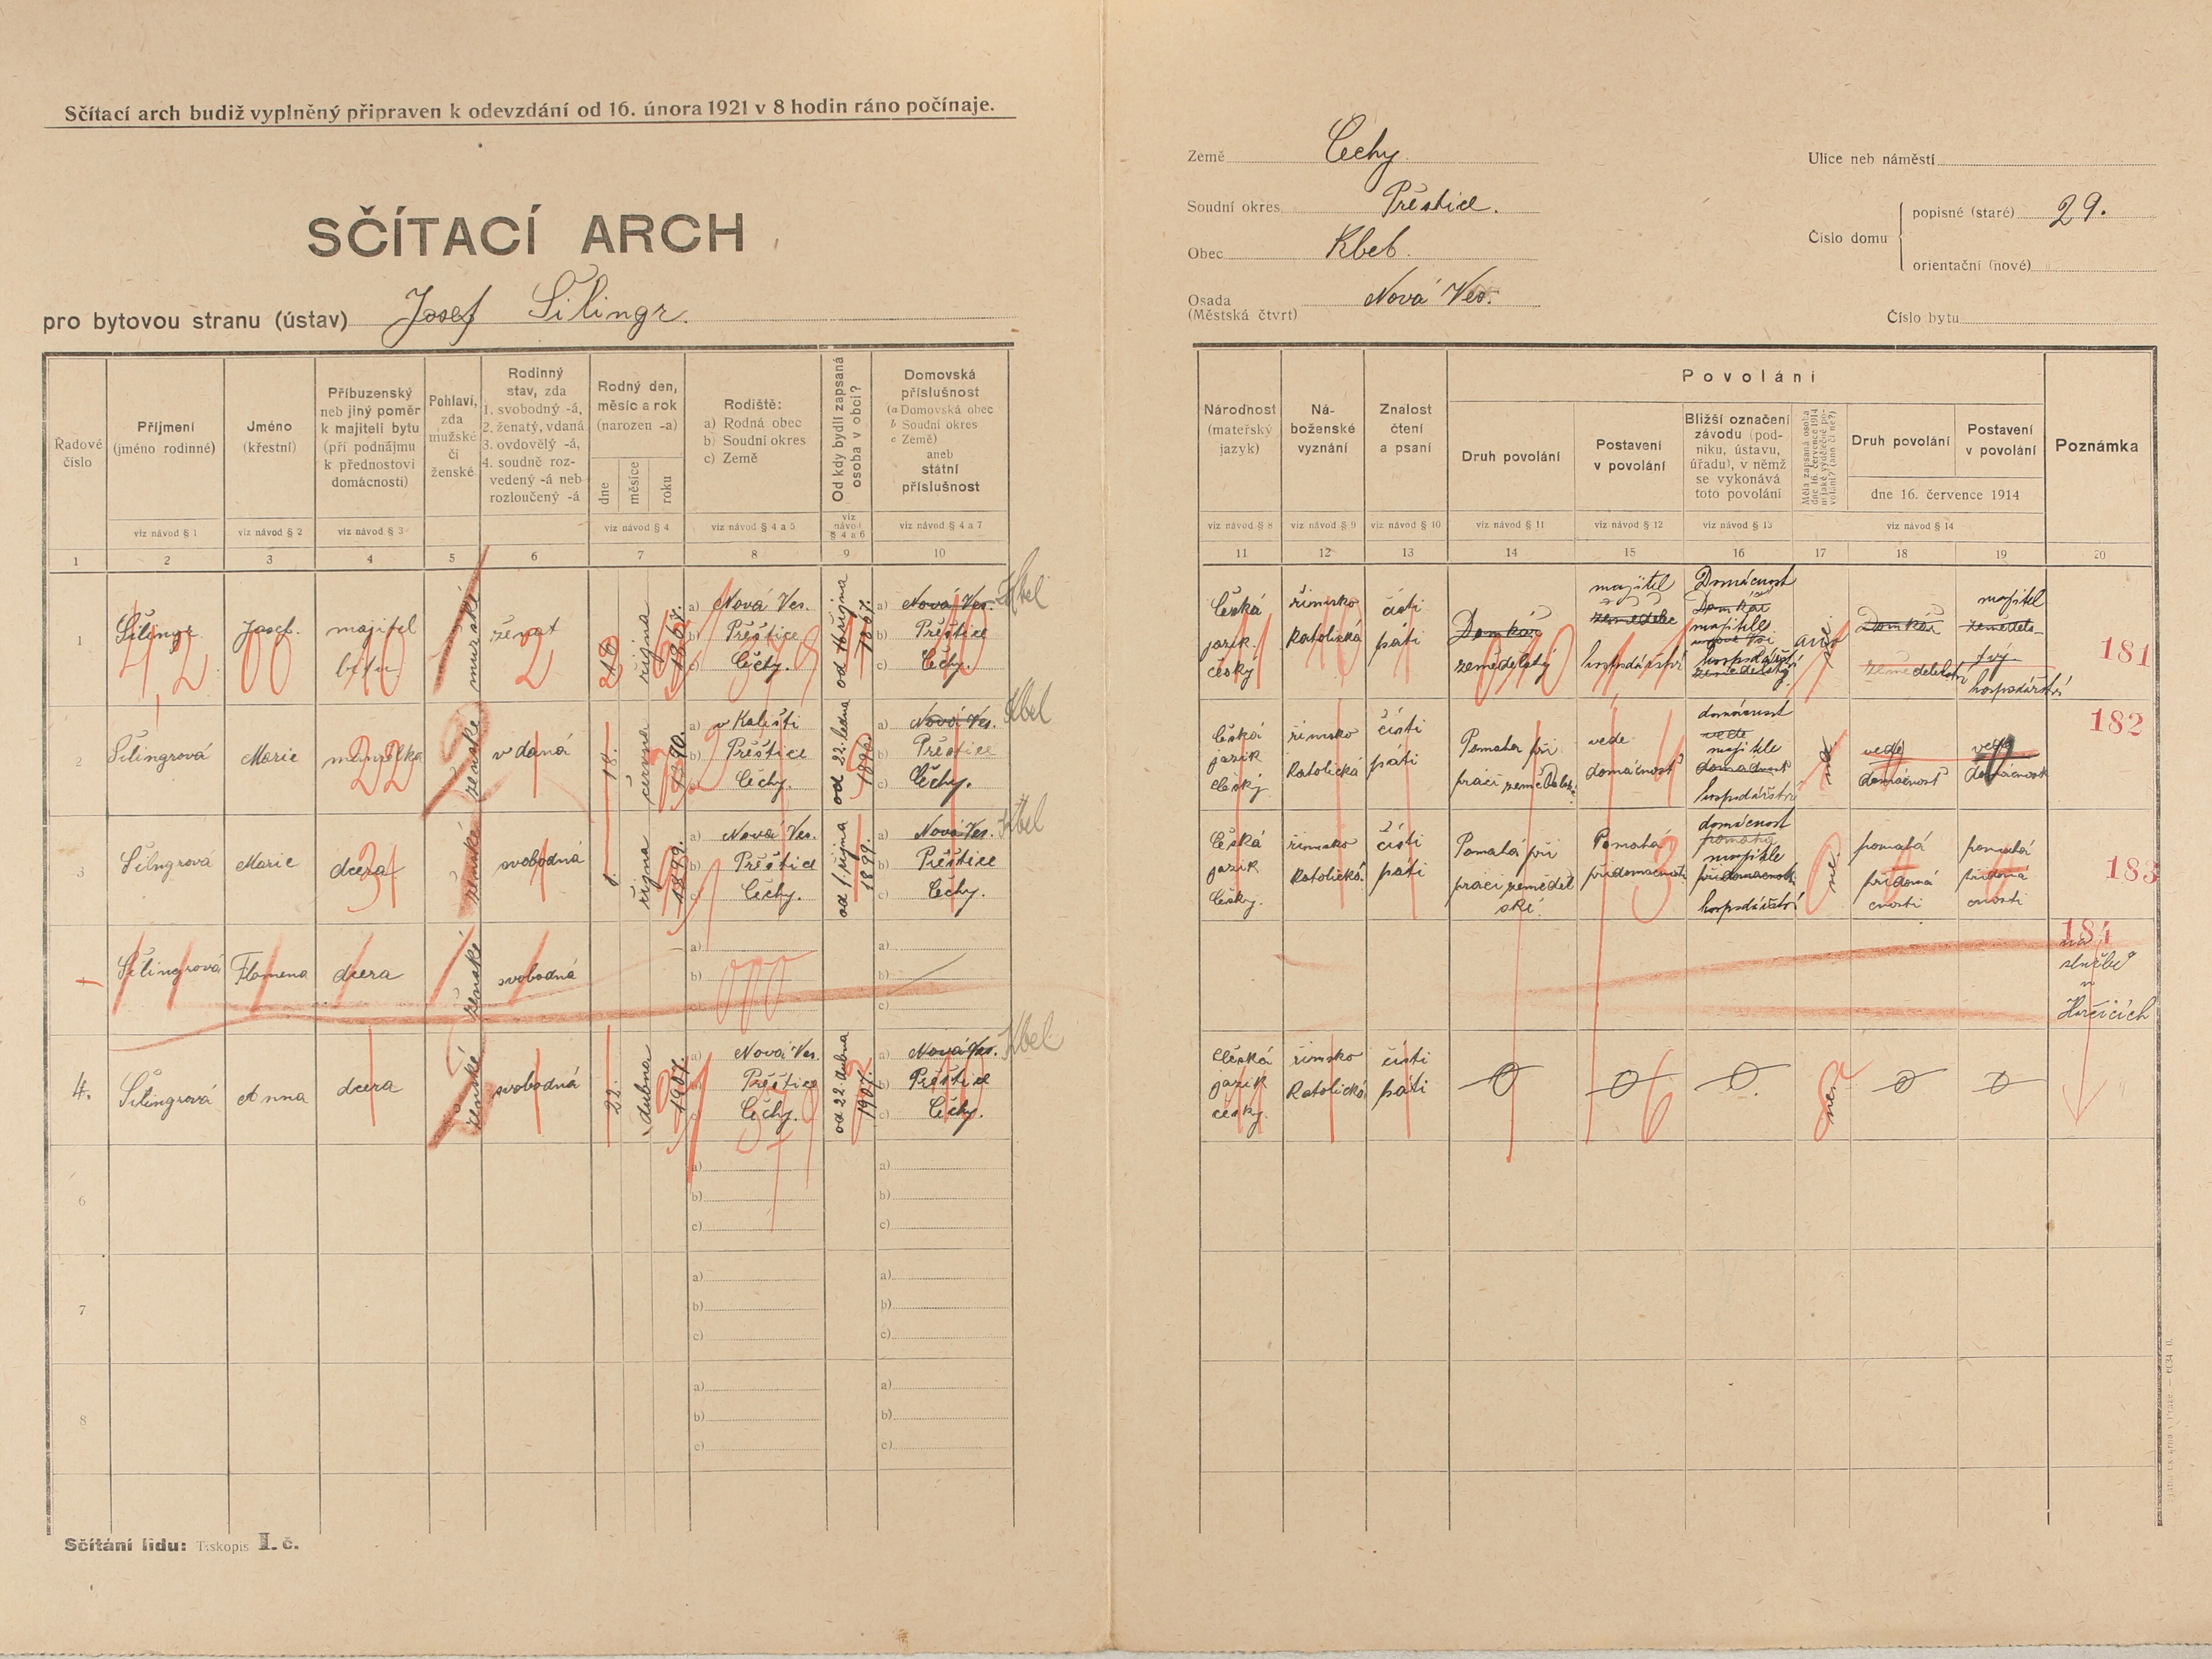 Sčítací arch budiž vyplněný připraven k odevzdání od 16. února 1921 v 8 hodin ráno počínaje.
SČÍTACÍ ARCH
pro bytovou stranu (ústav) Josef Šilingr.
Země Čechy.
Soudní okres Přeštice.
Obec Kbel.
Osada Nová Ves.
(Městská čtvrť)
Ulice neb náměstí
Číslo domu
popisné (staré) 29.
orientační (nové)
Číslo bytu
Řadové číslo
Příjmení (jméno rodinné)
Jméno (křestní)
Příbuzenský neb jiný poměr k majiteli bytu (při podnájmu k přednostovi domácnosti)
Pohlaví, zda mužské či ženské
Rodinný stav, zda 1. svobodný -á, 2. ženatý, vdaná 3. ovdovělý -á, 4. soudně rozvedený -á neb rozloučený -á
Rodný den, měsíc a rok (narozen -a)
dne
měsíce
roku
Rodiště: a) Rodná obec b) Soudní okres c) Země
Od kdy bydlí zapsaná osoba v obci?
Domovská příslušnost (a Domovská obec b Soudní okres c Země) aneb státní příslušnost
Národnost (mateřský jazyk)
Náboženské vyznání
Znalost čtení a psaní
Povolání
Druh povolání
Postavení v povolání
Bližší označení závodu (podniku, ústavu, úřadu), v němž se vykonává toto povolání
Měla zapsaná osoba dne 16. července 1914 nějaké výdělečné povolání? (ano či ne?)
Druh povolání
Postavení v povolání
dne 16. července 1914
Poznámka
viz návod § 1
viz návod § 2
viz návod § 3
viz návod § 4
viz návod § 4 a 5
viz návod § 4 a 6
viz návod § 4 a 7
viz návod § 8
viz návod § 9
viz návod § 10
viz návod § 11
viz návod § 12
viz návod § 13
viz návod § 14
1 2 3 4 5 6 7 8 9 10 11 12 13 14 15 16 17 18 19 20
1 Šilingr Josef. majitel bytu mužské ženat října 1867.
a) Nová Ves.
b) Přeštice
c) Čechy.
od října 1867.
a) Nová Ves. Kbel
b) Přeštice
c) Čechy.
Česká jazik český
římsko katolická
čísti páti
Domkář zemědělský
majitel hospodářství
Domácnost Domkář majitele hospodářství
Domkář
majitel hospodářství
181
2 Šilingrová Marie manželka ženské vdaná 18. června
a) v Kališti
b) Přeštice
c) Čechy.
od 22. ledna
a) Nová Ves. Kbel
b) Přeštice
c) Čechy.
Česká jazik český
římsko katolická
čísti páti
Pomaha při práci
vede domácnost
domácnost vede majitele domácnost hospodářství
ne.
vede domácnost
vede domácnost
182
3 Šilngrová Marie dcera ženské svobodná 1. října 1899.
a) Nová Ves.
b) Přeštice
c) Čechy.
od 1. října 1899.
a) Nová Ves. Kbel
b) Přeštice
c) Čechy.
Česká jazik česky.
římsko katolická
čísti páti
Pomahá při práci zemědělské.
Pomahá při domácnosti
domácnost pomaha majitele při domacnosti hospodářství
ne.
pomahá při domácnosti
pomahá při domácnosti
183
Šilingrová Filomena dcera ženské svobodná
a)
b)
c)
a)
b)
c)
184
na službě v Horčicích
4. Šilingrová Anna dcera ženské svobodná 22. dubna 1907.
a) Nová Ves.
b) Přeštice
c) Čechy.
od 22. dubna 1907.
a) Nová Ves. Kbel
b) Přeštice
c) Čechy.
Česká jazik česky.
římsko katolická
čísti páti
6
a)
b)
c)
a)
b)
c)
7
a)
b)
c)
a)
b)
c)
8
a)
b)
c)
a)
b)
c)
Sčítání lidu: Tiskopis I. č.